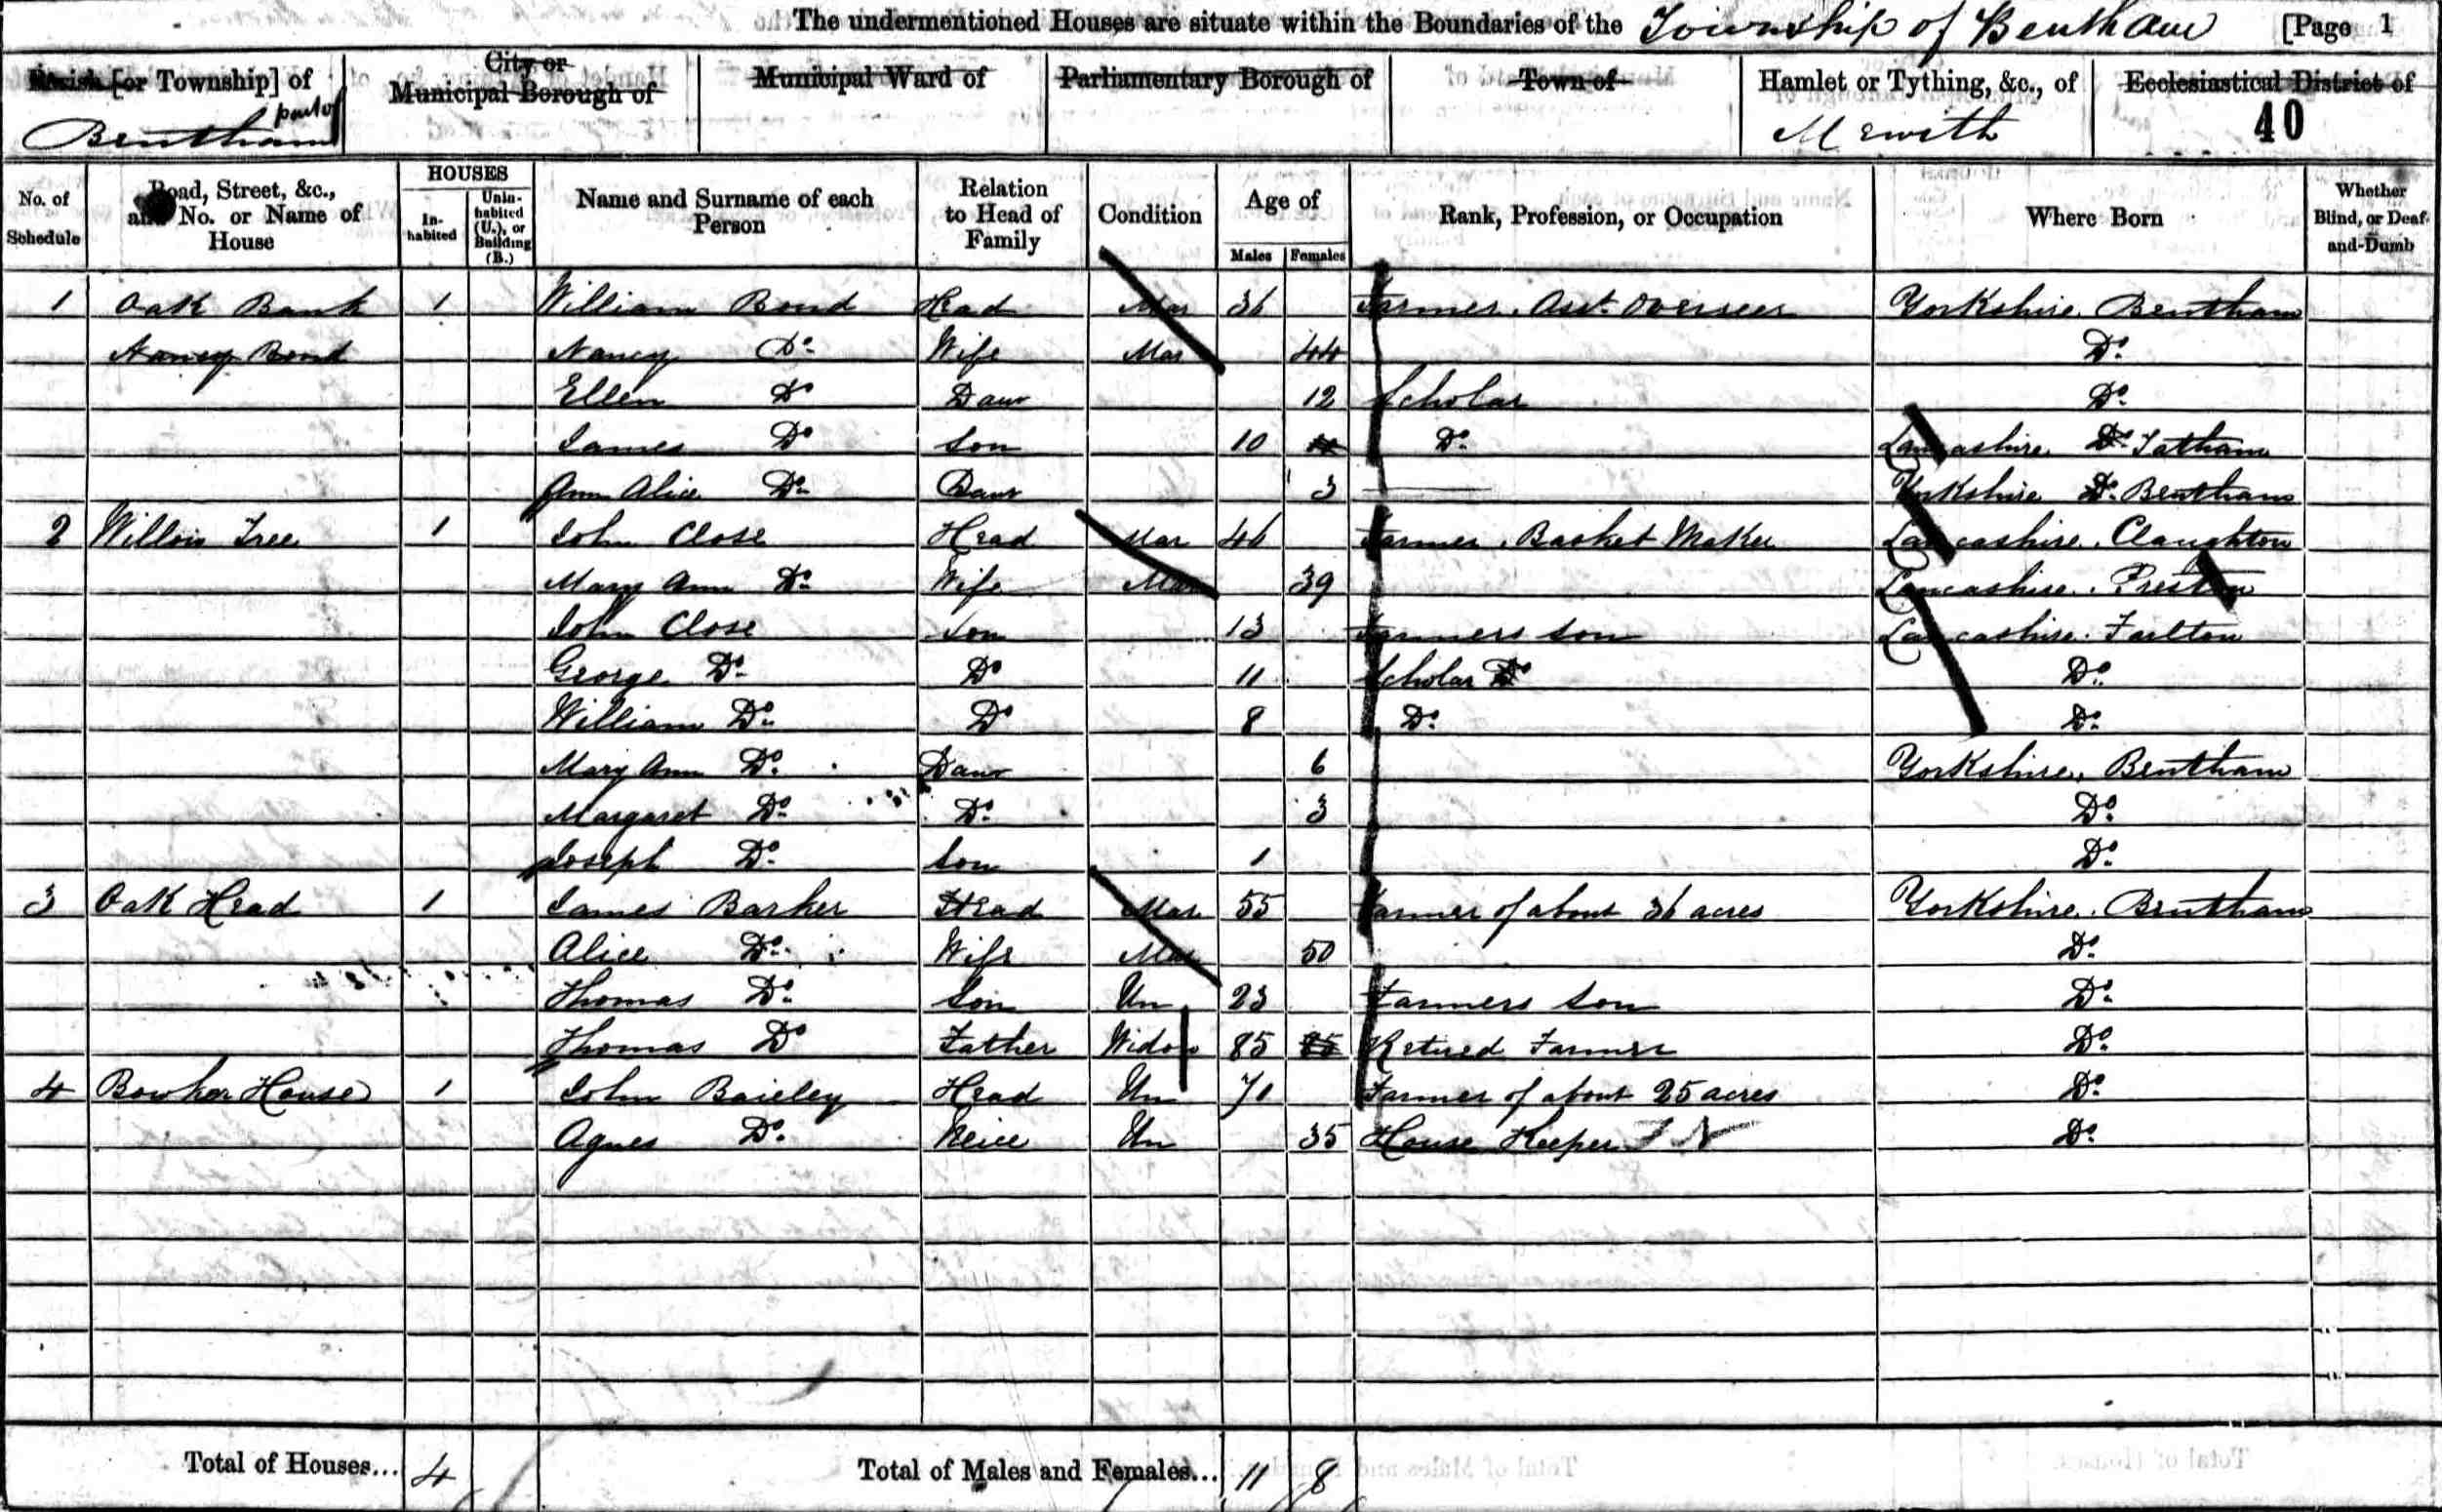 The undermentioned Houses are situate within the Boundaries of the Township of Bentham [Page 1
Parish [or Township] of part of Bentham
City or Municipal Borough of
Municipal Ward of
Parliamentary Borough of
Town of
Hamlet or Tything, &c., of Mewith
Ecclesiastical District of 40
No. of Schedule
Road, Street, &c., and No. or Name of House
HOUSES
Inhabited
Uninhabited (U.), or Building (B.)
Name and Surname of each Person
Relation to Head of Family
Condition
Age of
Males Females
Rank, Profession, or Occupation
Where Born
Whether Blind, or Deaf-and-Dumb
1 Oak Bank 1 William Bond Head Mar 36 Farmer. Asst. Overseer Yorkshire Bentham
Nancy Bond Nancy Do. Wife Mar 44 Do.
Ellen Do Daur 12 Scholar Do.
James Do Son 10 Do. Lancashire Do. Tatham
Ann Alice Do. Daur 3 Yorkshire Do. Bentham
2 Willow Tree 1 John Close Head Mar 46 Farmer, Basket Maker Lancashire. Claughton
Mary Ann Do. Wife Mar 39 Lancashire. Preston
John Close Son 13 Farmers Son Lancashire. Farlton
George Do. Do 11 Scholar Do Do.
William Do. Do 8 Do. Do.
Mary Ann Do. Daur 6 Yorkshire. Bentham
Margaret Do. Do. 3 Do.
Joseph Do. Son 1 Do.
3 Oak Head 1 James Barker Head Mar 55 Farmer of about 36 acres Yorkshire. Bentham
Alice Do. Wife Mar 50 Do.
Thomas Do. Son Un 23 Farmers Son Do.
Thomas Do Father Widow 85 85 Retired Farmer Do.
4 Bowker House 1 John Baieley Head Un 71 Farmer of about 25 acres Do.
Agnes Do. Neice Un 35 House Keeper Do.
Total of Houses... 4 Total of Males and Females... 11 8